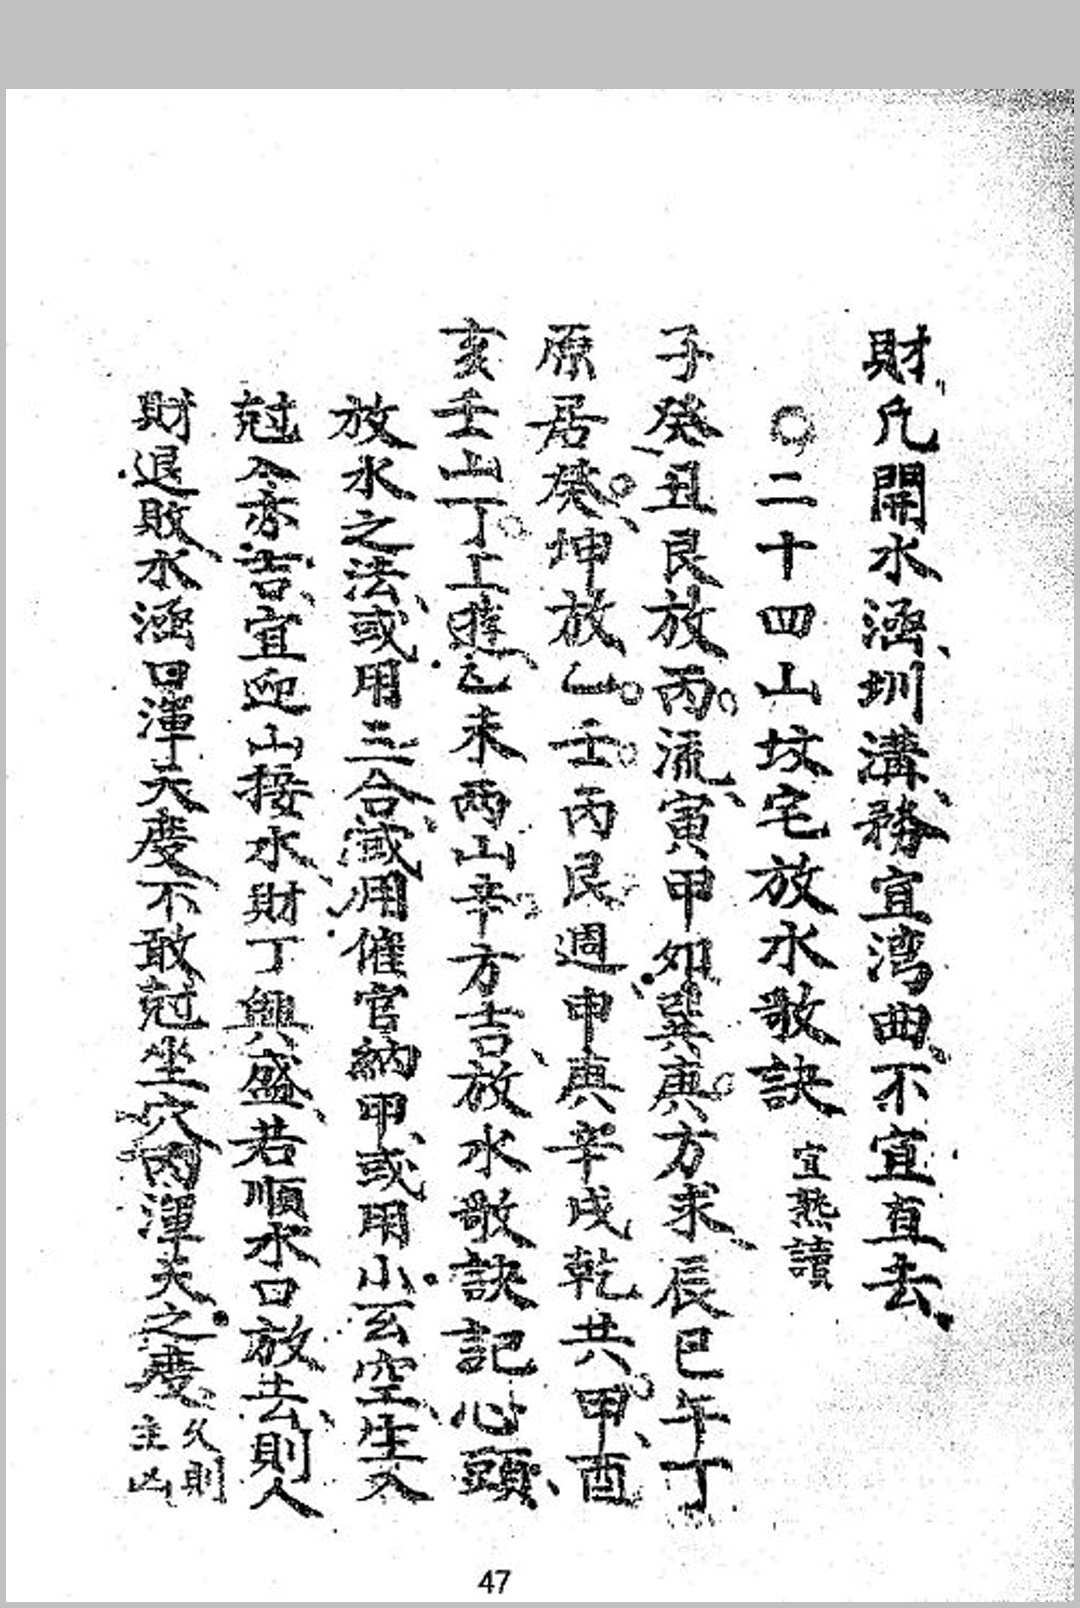 財、凢開水涵、圳溝、務宜湾曲、不宜直去、
○二十四山坟宅放水歌訣 宜熟讀
子癸丑艮放丙。流、寅甲如巽庚。方求、辰巳午丁
原居癸。坤放乙。壬。丙艮週申庚辛戌乾共甲。酉
亥壬山丁。上遊、乙未両山辛。方吉、放水歌訣記心頭、
放水之法、或用三合、或用催官納甲、或用小玄空、生入
尅入亦吉、宜迎山接水、財丁興盛、若順水口放去、則人
財退敗、水涵口渾天度、不敢尅坐穴內渾天之度。久則主凶
47